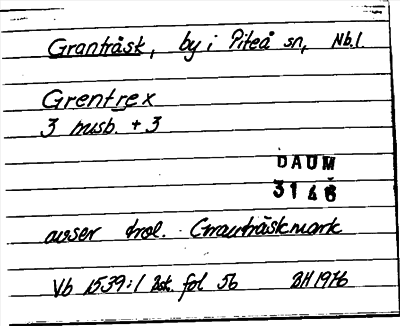 Granträsk, by i Piteå sn, Nb.l.
Grentrex
3 husb. + 3
DAUM
3146
avser trol. Granträskmark
Vb 1539:1 Bsk. fol 56 BH 1976